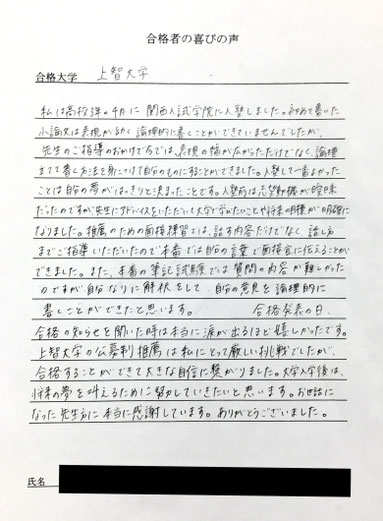 合格者の喜びの声
合格大学 上智大学
私は高校3年の4月に関西入試学院に入塾しました。初めて書いた
小論文は表現が幼く論理的に書くことができていませんでしたが、
先生のご指導のおかげで今では、表現の幅が広がっただけでなく、論理
立てて書く方法を身につけて自分のものにすることができました。入塾して一番よかった
ことは自分の夢がはっきりと決まったことです。入塾前は志望動機が曖昧
だったのですが先生にアドバイスをいただいて大学で学びたいことや将来の目標が明確に
なりました。推薦のための面接練習では、話す内容だけでなく、話し方
までご指導いただいたので本番では自分の言葉で面接官に伝えることが
できました。また、本番の筆記試験では質問の内容が難しかった
のですが自分なりに解釈をして、自分の意見を論理的に
書くことができたと思います。 合格発表の日、
合格の知らせを聞いた時は本当に涙が出るほど嬉しかったです。
上智大学の公募制推薦は私にとって厳しい挑戦でしたが、
合格することができて大きな自信に繋がりました。大学入学後は、
将来の夢を叶えるために努力していきたいと思います。お世話に
なった先生方に本当に感謝しています。ありがとうございました。
氏名